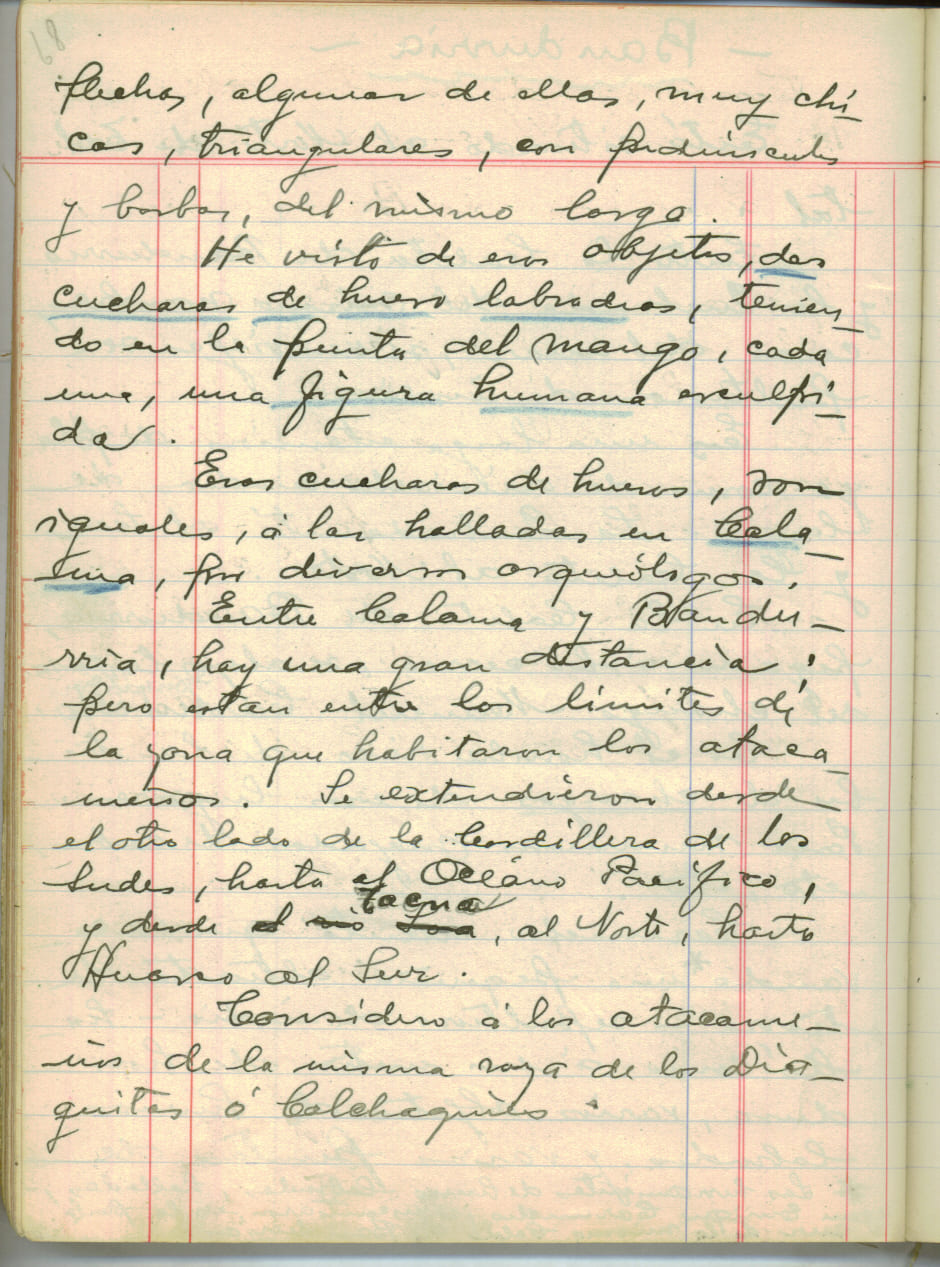 flechas, algunas de ellas, muy chi-
cas, triangulares, con pedúnculos
y barbas, del mismo largo.
He visto de esos objetos, dos
cucharas de hueso labradas, tenien-
do en la punta del mango, cada
una, una figura humana esculpi-
da.
Esas cucharas de huesos, son
iguales, á las halladas en Cala-
ma, por diversos arqueólogos.
Entre Calama y Bandu-
rria, hay una gran distancia;
pero estan entre los límites de
la zona que habitaron los ataca-
meños. Se extendieron desde
el otro lado de la Cordillera de los
Andes, hasta el Océano Pacífico,
Tacna
y desde el rio Loa, al Norte, hasta
Huasco al Sur.
Considero á los atacame-
ños de la misma raza de los Dia-
guitas ó Calchaquies.